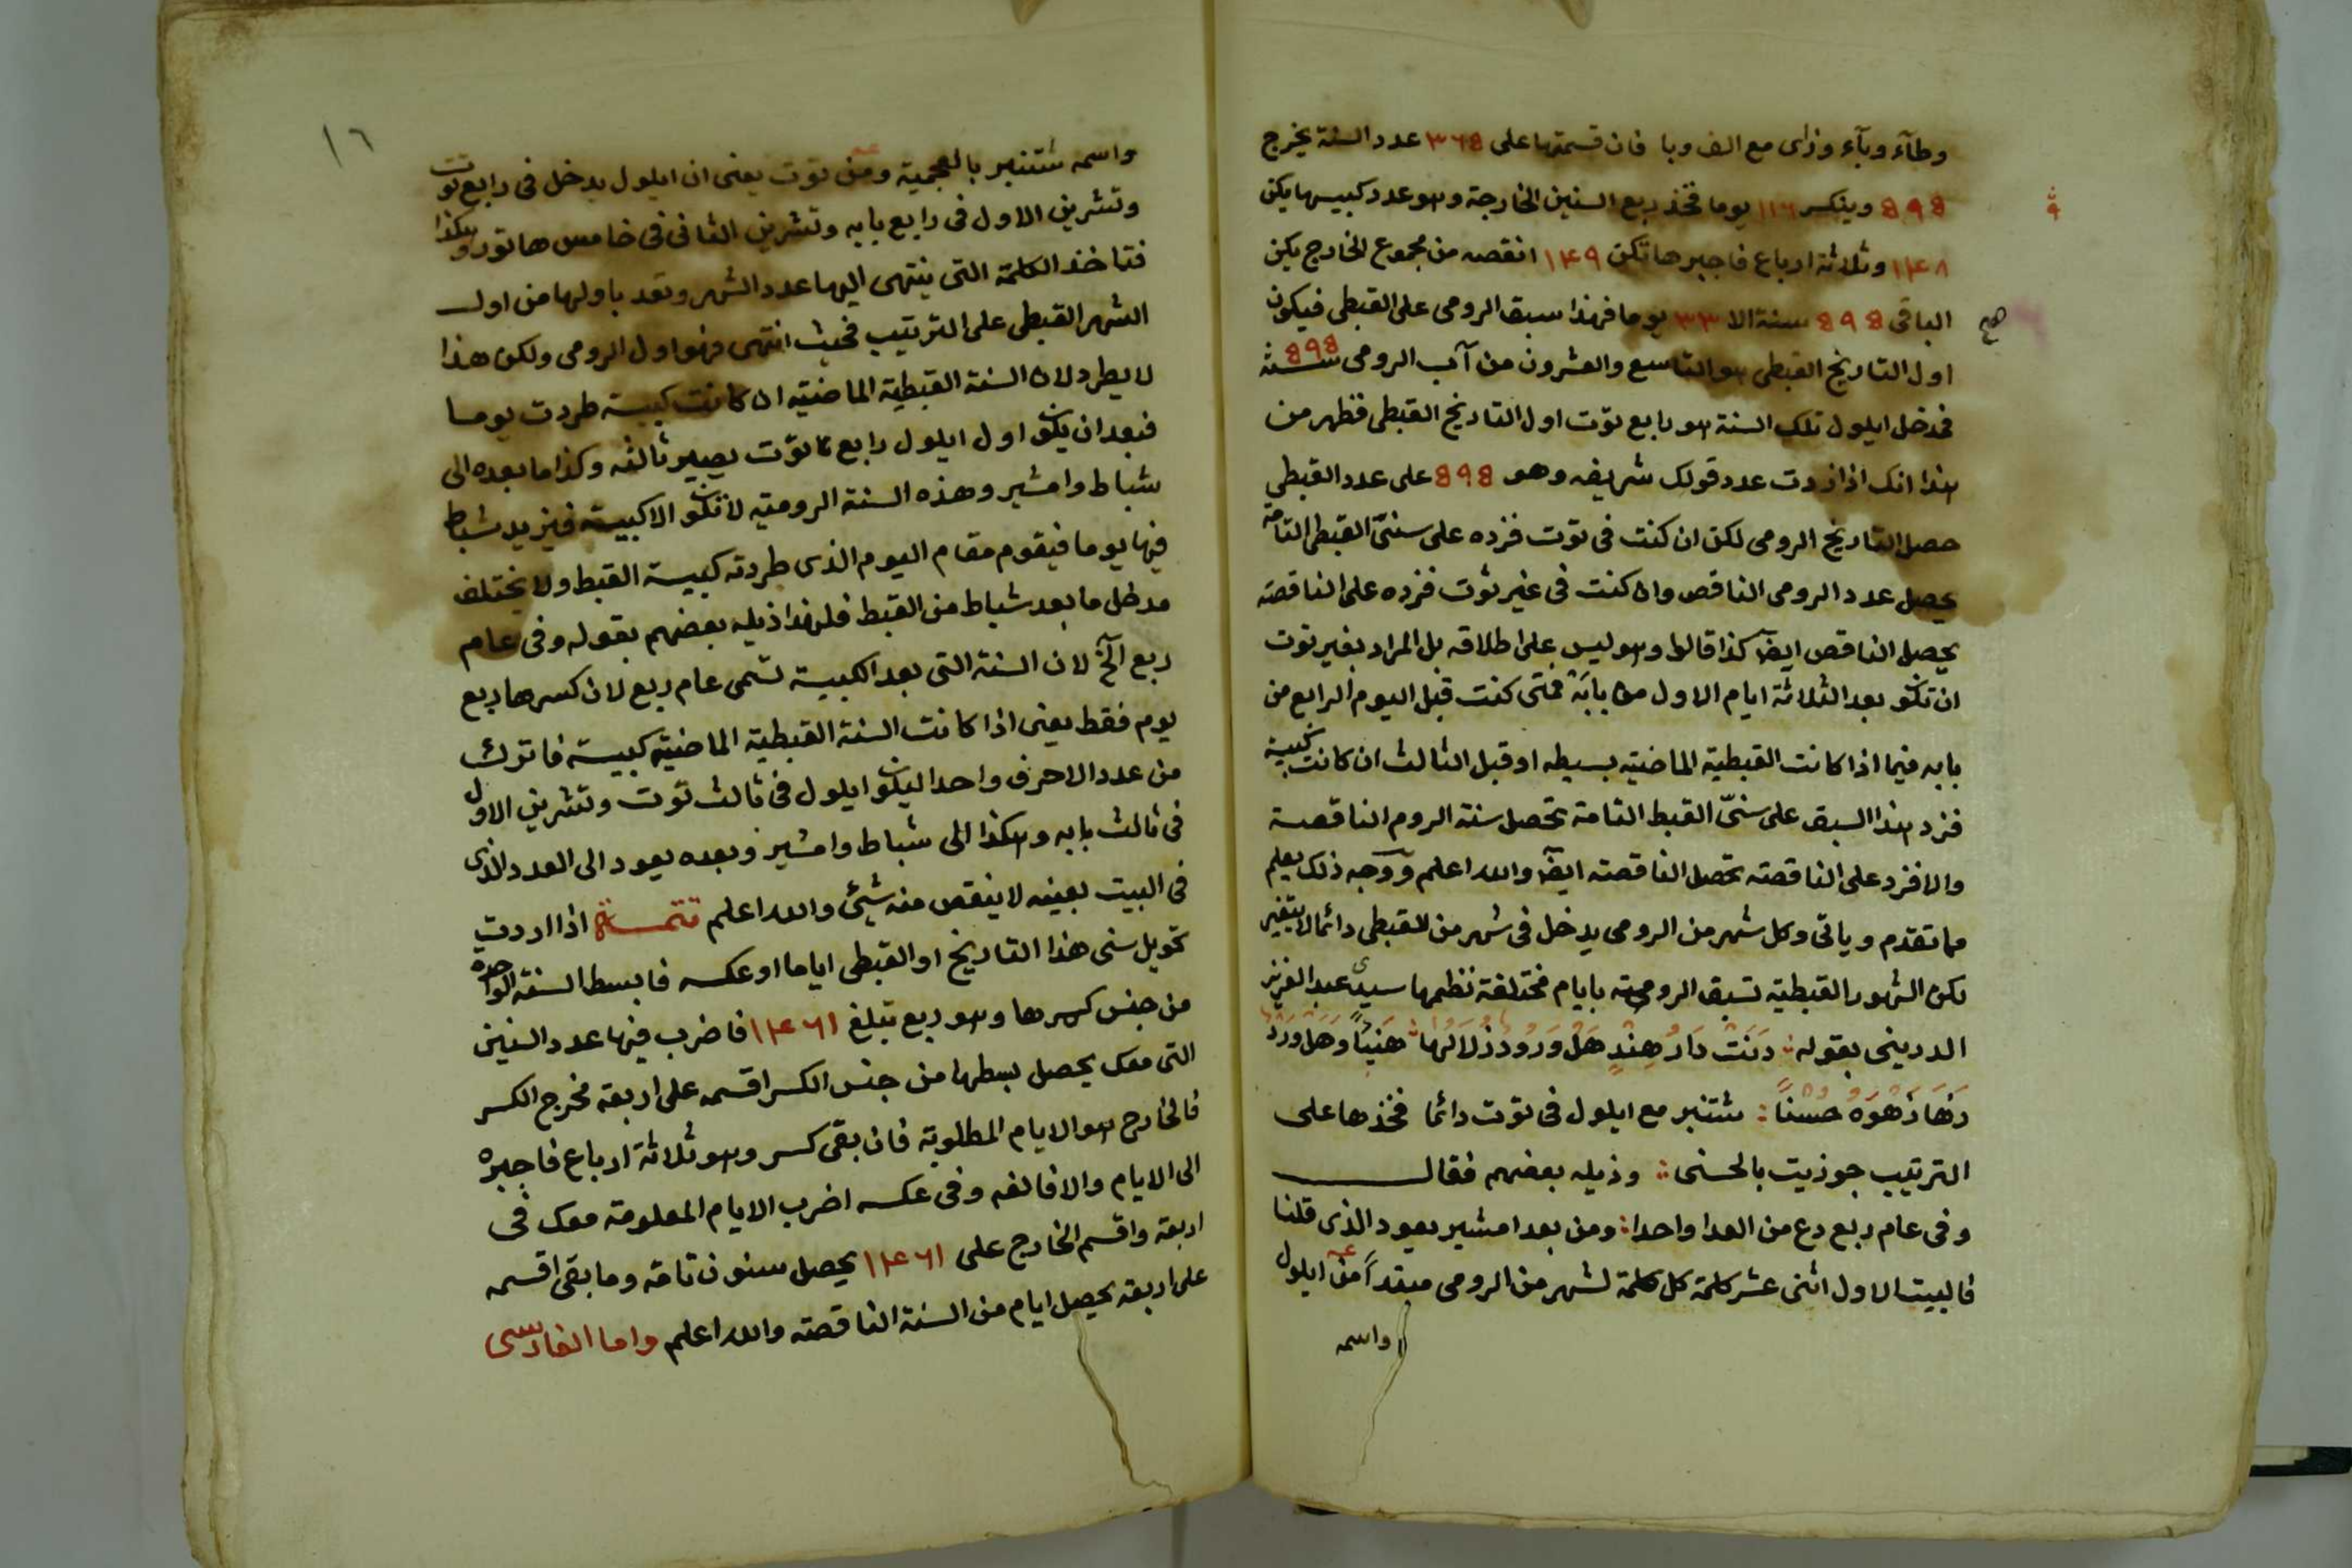 وطآء وبآء وزاى مع الف وبا فان قسمتها على ٣٦٥ عدد السنة يخرج
٥٩٥ وينكسر ١١٦ يوما فخذ ربع السنين الخارجة وهو عدد كبيسها يكن
١٤٨ وثلاثة ارباع فاجبرها تكن ١٤٩ انقصه من مجموع الخارج يكن
الباقى ٥٩٥ سنة الا ٣٣ يوما فهذا سبق الرومى على القبطى فيكون
اول التاريخ القبطى هو التاسع والعشرون من آب الرومى سنة ٥٩٥
فمدخل ايلول تلك السنة هو رابع توت اول التاريخ القبطى فظهر من
هذا انك اذا زدت عدد قولك شريفه وهو ٥٩٥ على عدد القبطى
حصل التاريخ الرومى لكن ان كنت فى توت فزده على سنىّ القبط التامة
يحصل عدد الرومى الناقص وان كنت فى غير توت فزده على الناقصة
يحصل الناقص ايضا كذا قالوا وهو ليس على اطلاقه بل المراد بغير توت
ان تكون بعد الثلاثة ايام الاول من بابَه فمتى كنت قبل اليوم الرابع من
بابه فيما اذا كانت القبطية الماضية بسيطه او قبل الثالث ان كانت كبيسة
فزد هذا السبق على سنىّ القبط التامة تحصل سنة الروم الناقصة
والا فزد على الناقصة تحصل الناقصة ايضا والله اعلم ووجه ذلك يعلم
مما تقدم وياتى وكل شهر من الرومى يدخل فى شهر من القبطى دائما لا يتغير
لكن الشهور القبطية تسبق الرومية بايام مختلفة نظمها سيدى عبد العزيز
الدرينى بقوله دَنَت دَارُ هِندٍ هَل وَرُود زُلَالها هَنيئاً وَهَل وَرد
رَهَا زَهوَهُ حُسناً شتنبر مع ايلول فى توت دائما فخذها على
الترتيب جوزيت بالحسنى وذيله بعضهم فقال
وفى عام ربع دع من العدا واحدا ومن بعد امشير يعود الذى قلنا
فالبيت الاول اثنى عشر كلمة كل كلمة لشهر من الرومى مبتدأ من ايلول
واسمه
١٦
واسمه شتنبر بالعجمية ومن توت يعنى ان ايلول يدخل فى رابع توت
وتشرين الاول فى رابع بابه وتشرين الثانى فى خامس هاتور وهكذا
فتاخذ الكلمة التى ينتهى اليها عدد الشهر وتعد باولها من اول
الشهر القبطى على الترتيب فحيث انتهى فهو اول الرومى ولكن هذا
لا يطرد لان السنة القبطية الماضية ان كانت كبيسة طردت يوما
فبعد ان يكون اول ايلول رابع توت يصير ثالثه وكذا ما بعده الى
شباط وامشير وهذه السنة الرومية لا تكون الا كبيسة فيزيد شباط
فيها يوما فيقوم مقام اليوم الذى طردته كبيسة القبط ولا يختلف
مدخل ما بعد شباط من القبط فلهذا ذيله بعضهم بقوله وفى عام
ربع الخ لان السنة التى بعد الكبيسة تسمى عام ربع لان كسرها ربع
يوم فقط يعنى اذا كانت السنة القبطية الماضية كبيسة فاترك
من عدد الاحرف واحدا ليكون ايلول فى ثالث توت وتشرين الاول
فى ثالث بابه وهكذا الى شباط وامشير وبعده يعود الى العدد الذى
فى البيت بعينه لا ينقص منه شئ والله اعلم تتمة اذا اردت
تحويل سنى هذا التاريخ او القبطى اياما او عكسه فابسط السنة الواحدة
من جنس كسرها وهو ربع تبلغ ١٤٦١ فاضرب فيها عدد السنين
التى معك يحصل بسطها من جنس الكسر اقسمه على اربعة مخرج الكسر
فالخارج هو الايام المطلوبة فان بقى كسر وهو ثلاثة ارباع فاجبره
الى الايام والا فالغه وفى عكسه اضرب الايام المعلومة معك فى
اربعة واقسم الخارج على ١٤٦١ يحصل سنون تامة وما بقى اقسمه
على اربعة يحصل ايام من السنة الناقصة والله اعلم واما الفارسى